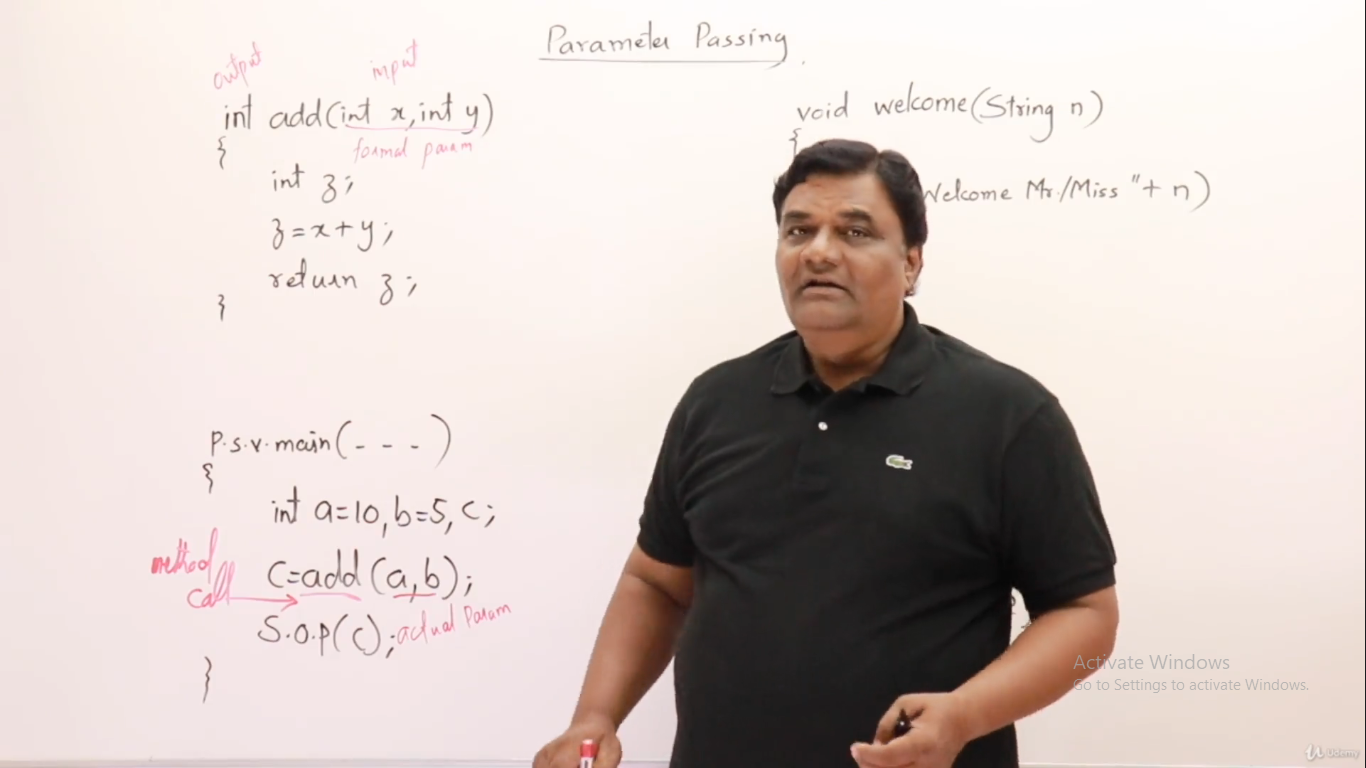 Parameter Passing
output
input
int add(int x, int y)
formal param
{
int z;
z=x+y;
return z;
}
P.s.v.main(- - -)
{
int a=10, b=5, c;
method
call
C=add(a,b);
actual Param
S.O.P(c);
}
void welcome(String n)
{
Welcome Mr./Miss "+ n)
Activate Windows
Go to Settings to activate Windows.
Udemy